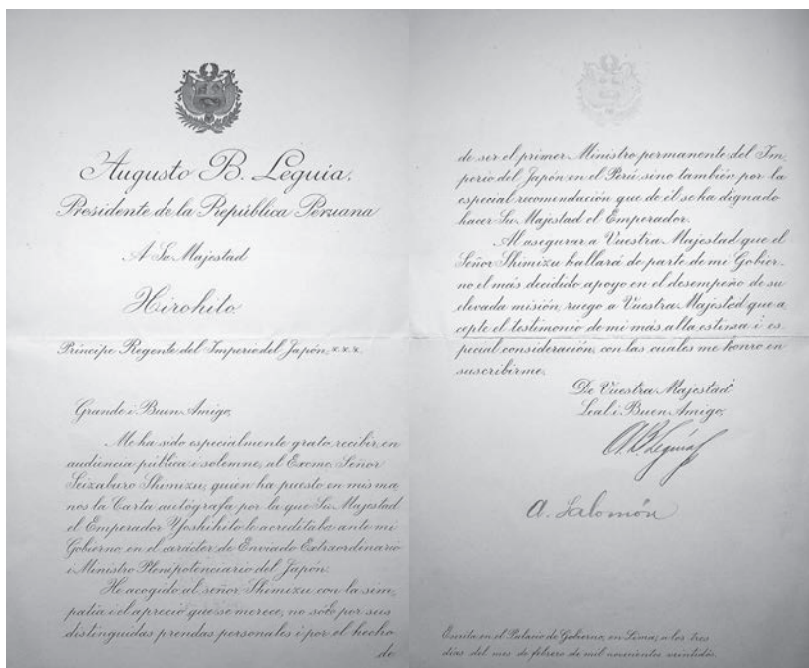 Augusto B. Leguía,
Presidente de la República Peruana
A Su Majestad
Hirohito
Príncipe Regente del Imperio del Japón, x.x.x.
Grande i Buen Amigo:
Me ha sido especialmente grato recibir, en
audiencia pública i solemne, al Excmo. Señor
Seizaburo Shimizu, quien ha puesto en mis ma
nos la Carta autógrafa por la que Su Majestad
el Emperador Yoshihito le acreditaba ante mi
Gobierno en el carácter de Enviado Extraordinario
i Ministro Plenipotenciario del Japón.
He acogido al señor Shimizu con la sim,
patía i el aprecio que se merece, no sólo por sus
distinguidas prendas personales i por el hecho
de
de ser el primer Ministro permanente del Im,
perio del Japón en el Perú sino también por la
especial recomendación que de él se ha dignado
hacer Su Majestad el Emperador.
Al asegurar a Vuestra Majestad que el
Señor Shimizu hallará de parte de mi Gobier,
no el más decidido apoyo en el desempeño de su
elevada misión, ruego a Vuestra Majestad que a,
cepte el testimonio de mi más alta estima i es,
pecial consideración, con las cuales me honro en
suscribirme,
De Vuestra Majestad
Leal i Buen Amigo,
A. B. Leguía
A. Salomón
Escrita en el Palacio de Gobierno, en Lima, a los tres
días del mes de febrero de mil novecientos veintidós.